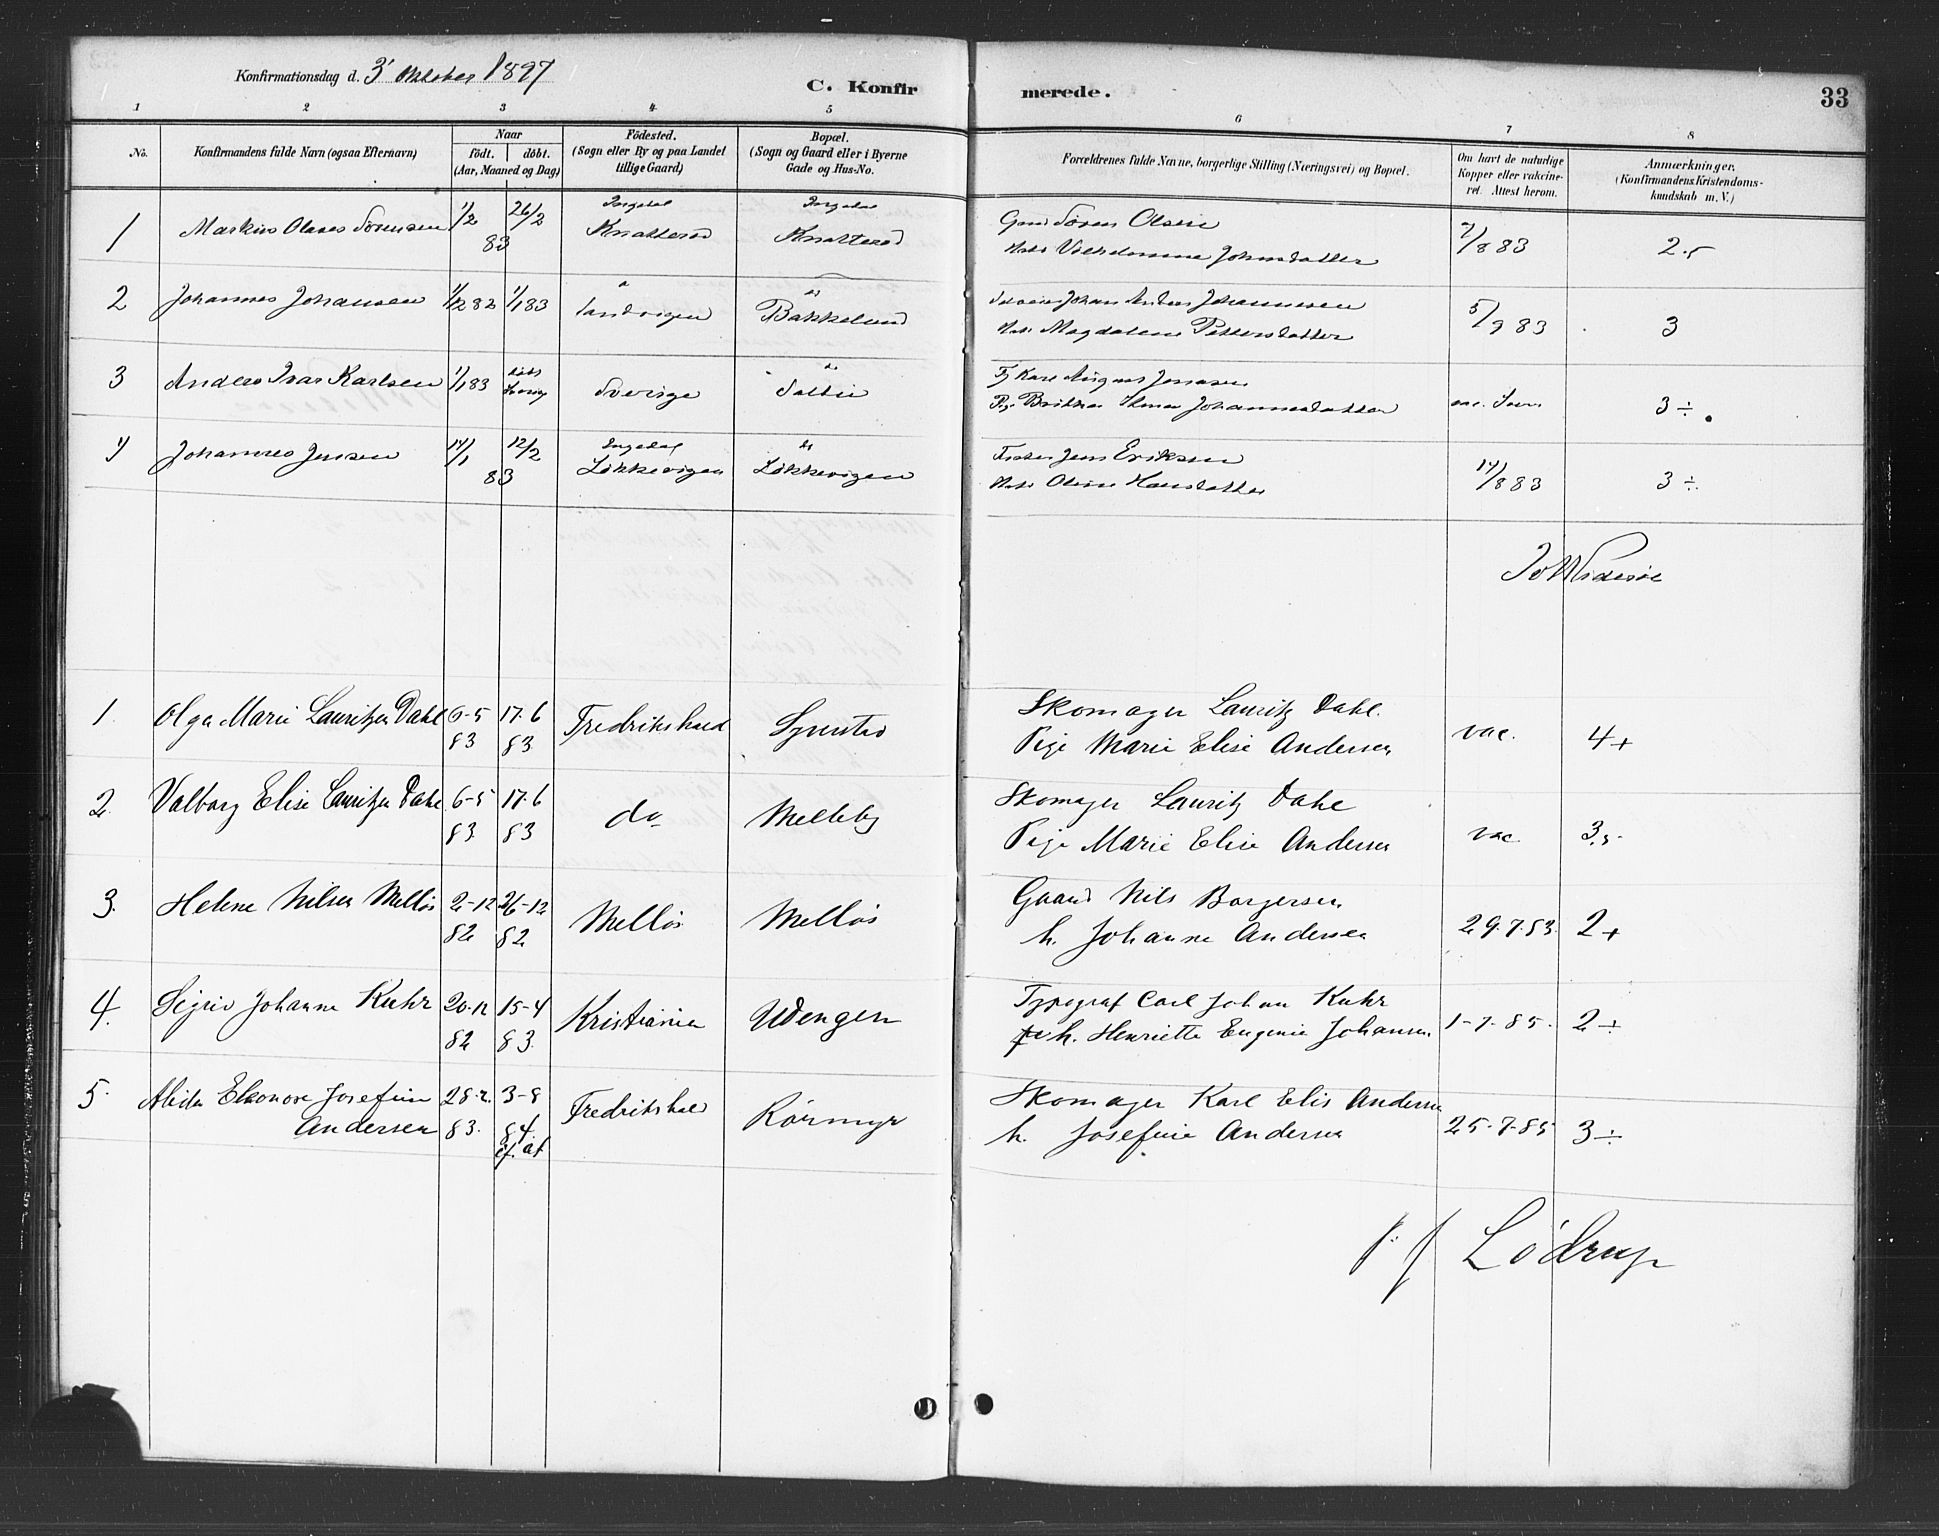 Konfirmationsdag d. 3' Oktober 1897
C. Konfirmerede.
33
1 2 3 4 5 6 7 8
No.
Konfirmandens fulde Navn (ogsaa Efternavn)
Naar
født. døbt.
(Aar, Maaned og Dag)
Fødested.
(Sogn eller By og paa Landet
tillige Gaard)
Bopæl.
(Sogn og Gaard eller i Byerne
Gade og Hus-No.
Forældrenes fulde Navne, borgerlige Stilling (Næringsvei) og Bopæl.
Om havt de naturlige
Kopper eller vakcine-
ret. Attest herom.
Anmærkninger.
(Konfirmandens Kristendoms-
kundskab m. V.)
1 Markus Olaves Sørensen 1/2 83 26/2 Ingedal Knatterød Ingedal Knatterød
Søren Olsen
Johnsdatter 7/8 83 2.5
2 Johannes Johansen 1/12 82 1/1 83 Sandvigen do Bakkelund
Johan Anders Johannesen
Magdalene Pettersdatter 5/9 83 3
3 Anders Ivar Karlsen 1/1 83 Sverige do
Karl August Jonasen
Johannesdatter vac. 3 ÷
4 Johannes Jensen 14/1 83 12/2 Ingedal Løkkevigen do Løkkevigen
Fisker Jens Eriksen
Oline Hansdatter 14/8 83 3 ÷
1. Olga Marie Lauritzen Dahl 6-5 83 17-6 83 Fredrikshald
Skomager Lauritz Dahl.
Pige Marie Elise Andersen vac. 4+
2. Valborg Elise Lauritzen Dahl 6-5 83 17-6 83 do Melleby
Skomager Lauritz Dahl
Pige Marie Elise Andersen vac. 3,5
3. Helene Nilsen Melløs 2-12 82 26-12 82 Melløs Melløs
Gaard Nils Borgersen
h. Johanne Andersen 29.7.83. 2+
4. Sigrid Johanne Kuhr 20-12 82 15-4 83. Kristiania Wengen
Typograf Carl Johan Kuhr
h. Henriette Eugenie Johansen 1-7-85. 2÷
5. Alida Eleonore Josefine
Andersen 28-2 83. 3-8 84 Fredrikshald Rørmyr
Skomager Karl Elis Andersen
h. Josefine Andersen 25-7-85 3÷
Lødrup